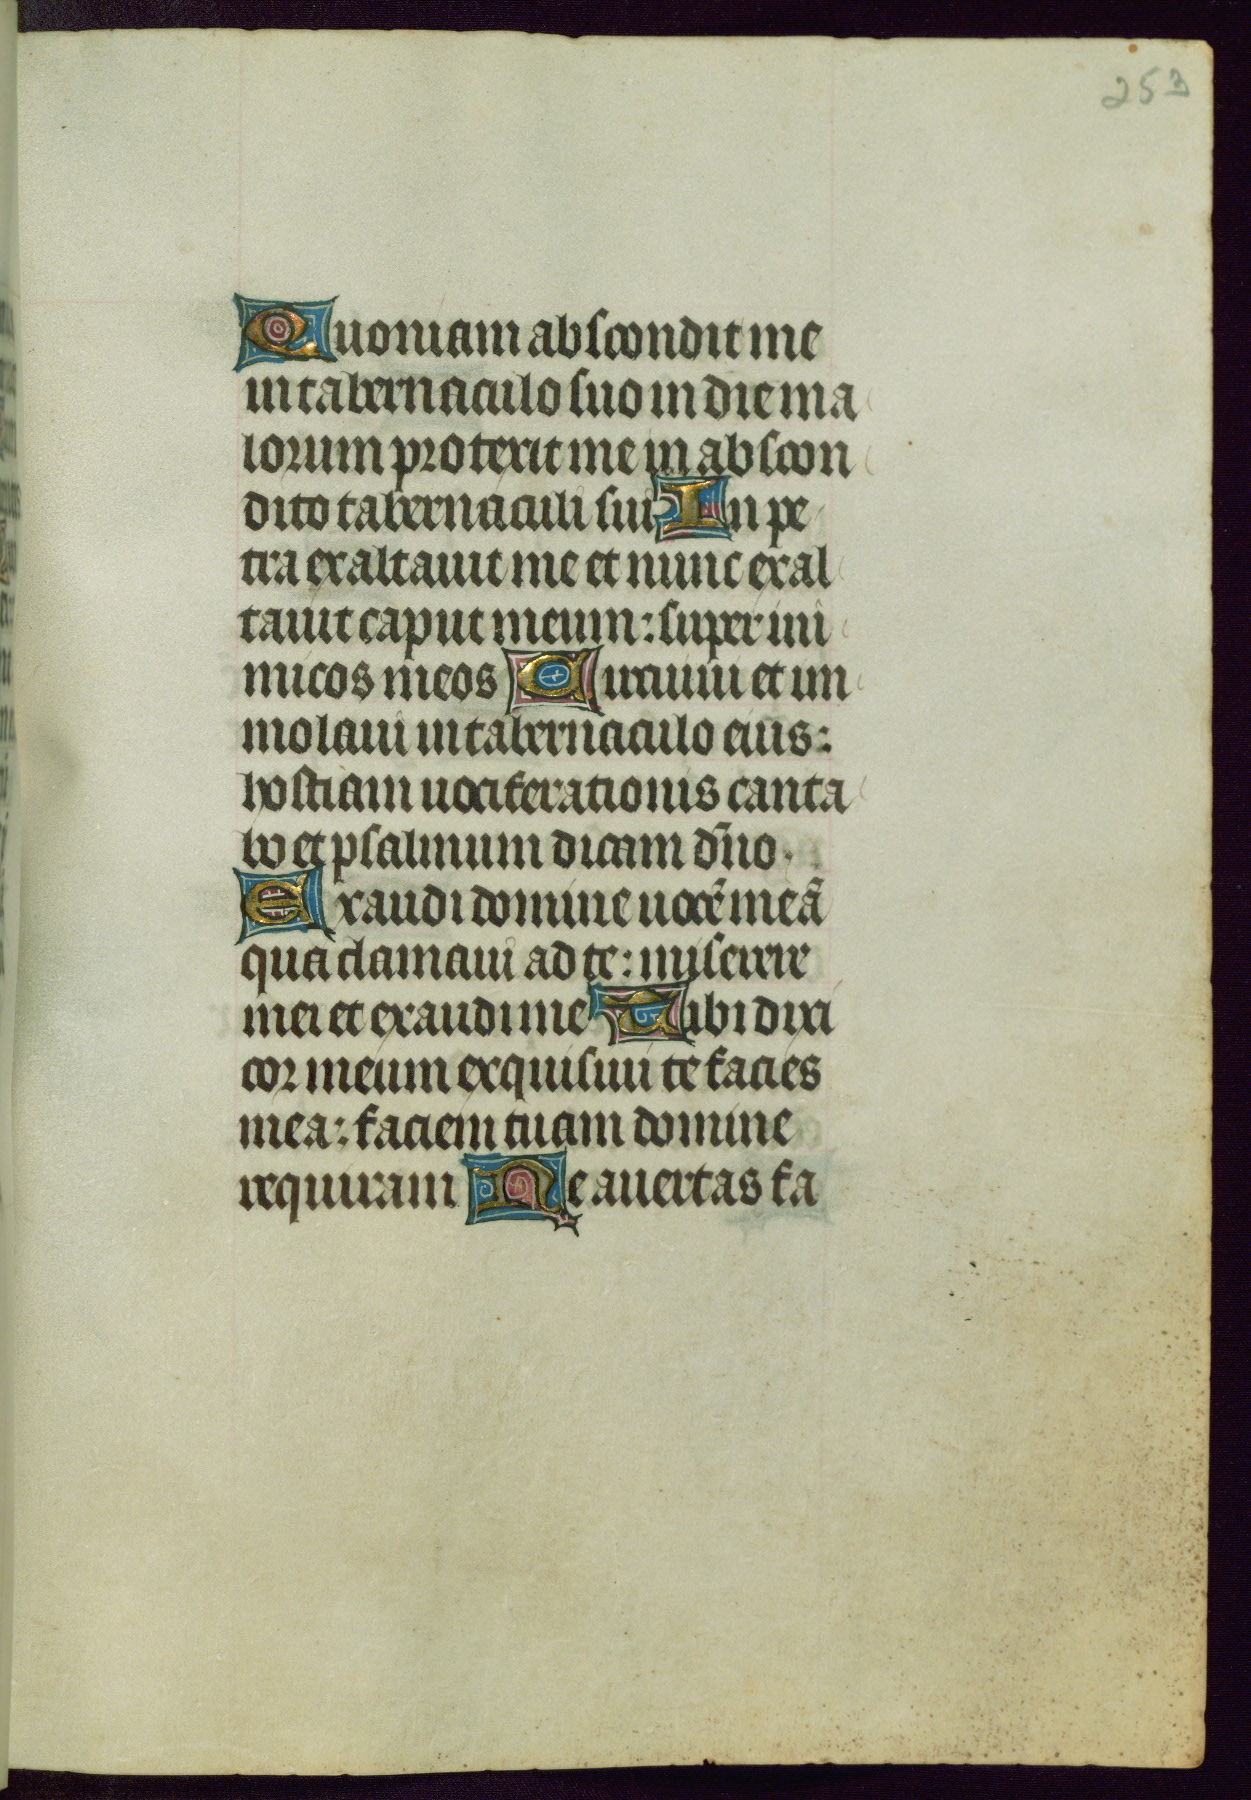 253
Quoniam abscondit me
in tabernaculo suo in die ma
lorum protexit me in abscon
dito tabernaculi sui In pe
tra exaltauit me et nunc exal
tauit caput meum: super ini
micos meos Circuiui et im
molaui in tabernaculo eius:
hostiam uociferationis canta
bo et psalmum dicam dño.
Exaudi domine uocē meā
qua clamaui ad te: miserere
mei et exaudi me Tibi dixi
cor meum exquisiuit te facies
mea: faciem tuam domine
requiram Ne auertas fa